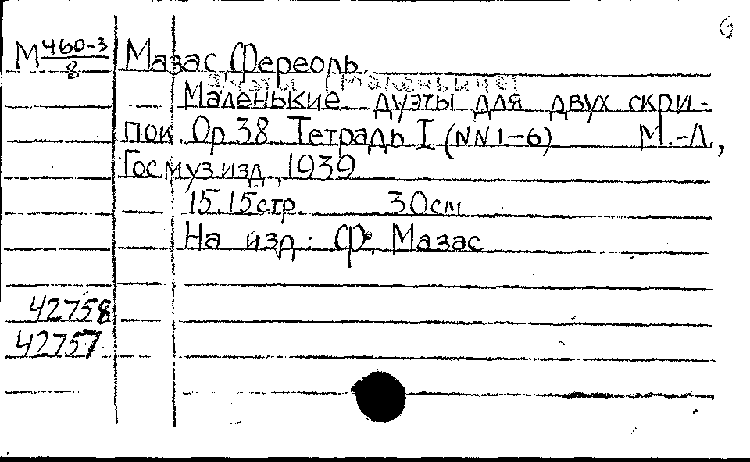 М 460-3/8 Мазас Фереоль.
Маленькие дуэты для двух скри-
пок. Op.38. Тетрадь I (NN1-6) М.-Л.,
Госмузизд., 1939
15.15стр. 30см
На изд: Ф. Мазас
42758
42757